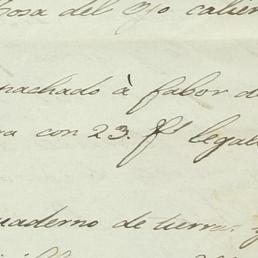 Cosa del Ojo calien
machado à fabor d
a con 23. f.s legal
uaderno de tierra. y